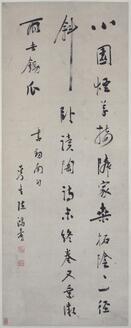 小園煙草接隣家桑柘陰〻一徑
斜卧讀陶詩未終卷又乘微
雨去鋤瓜